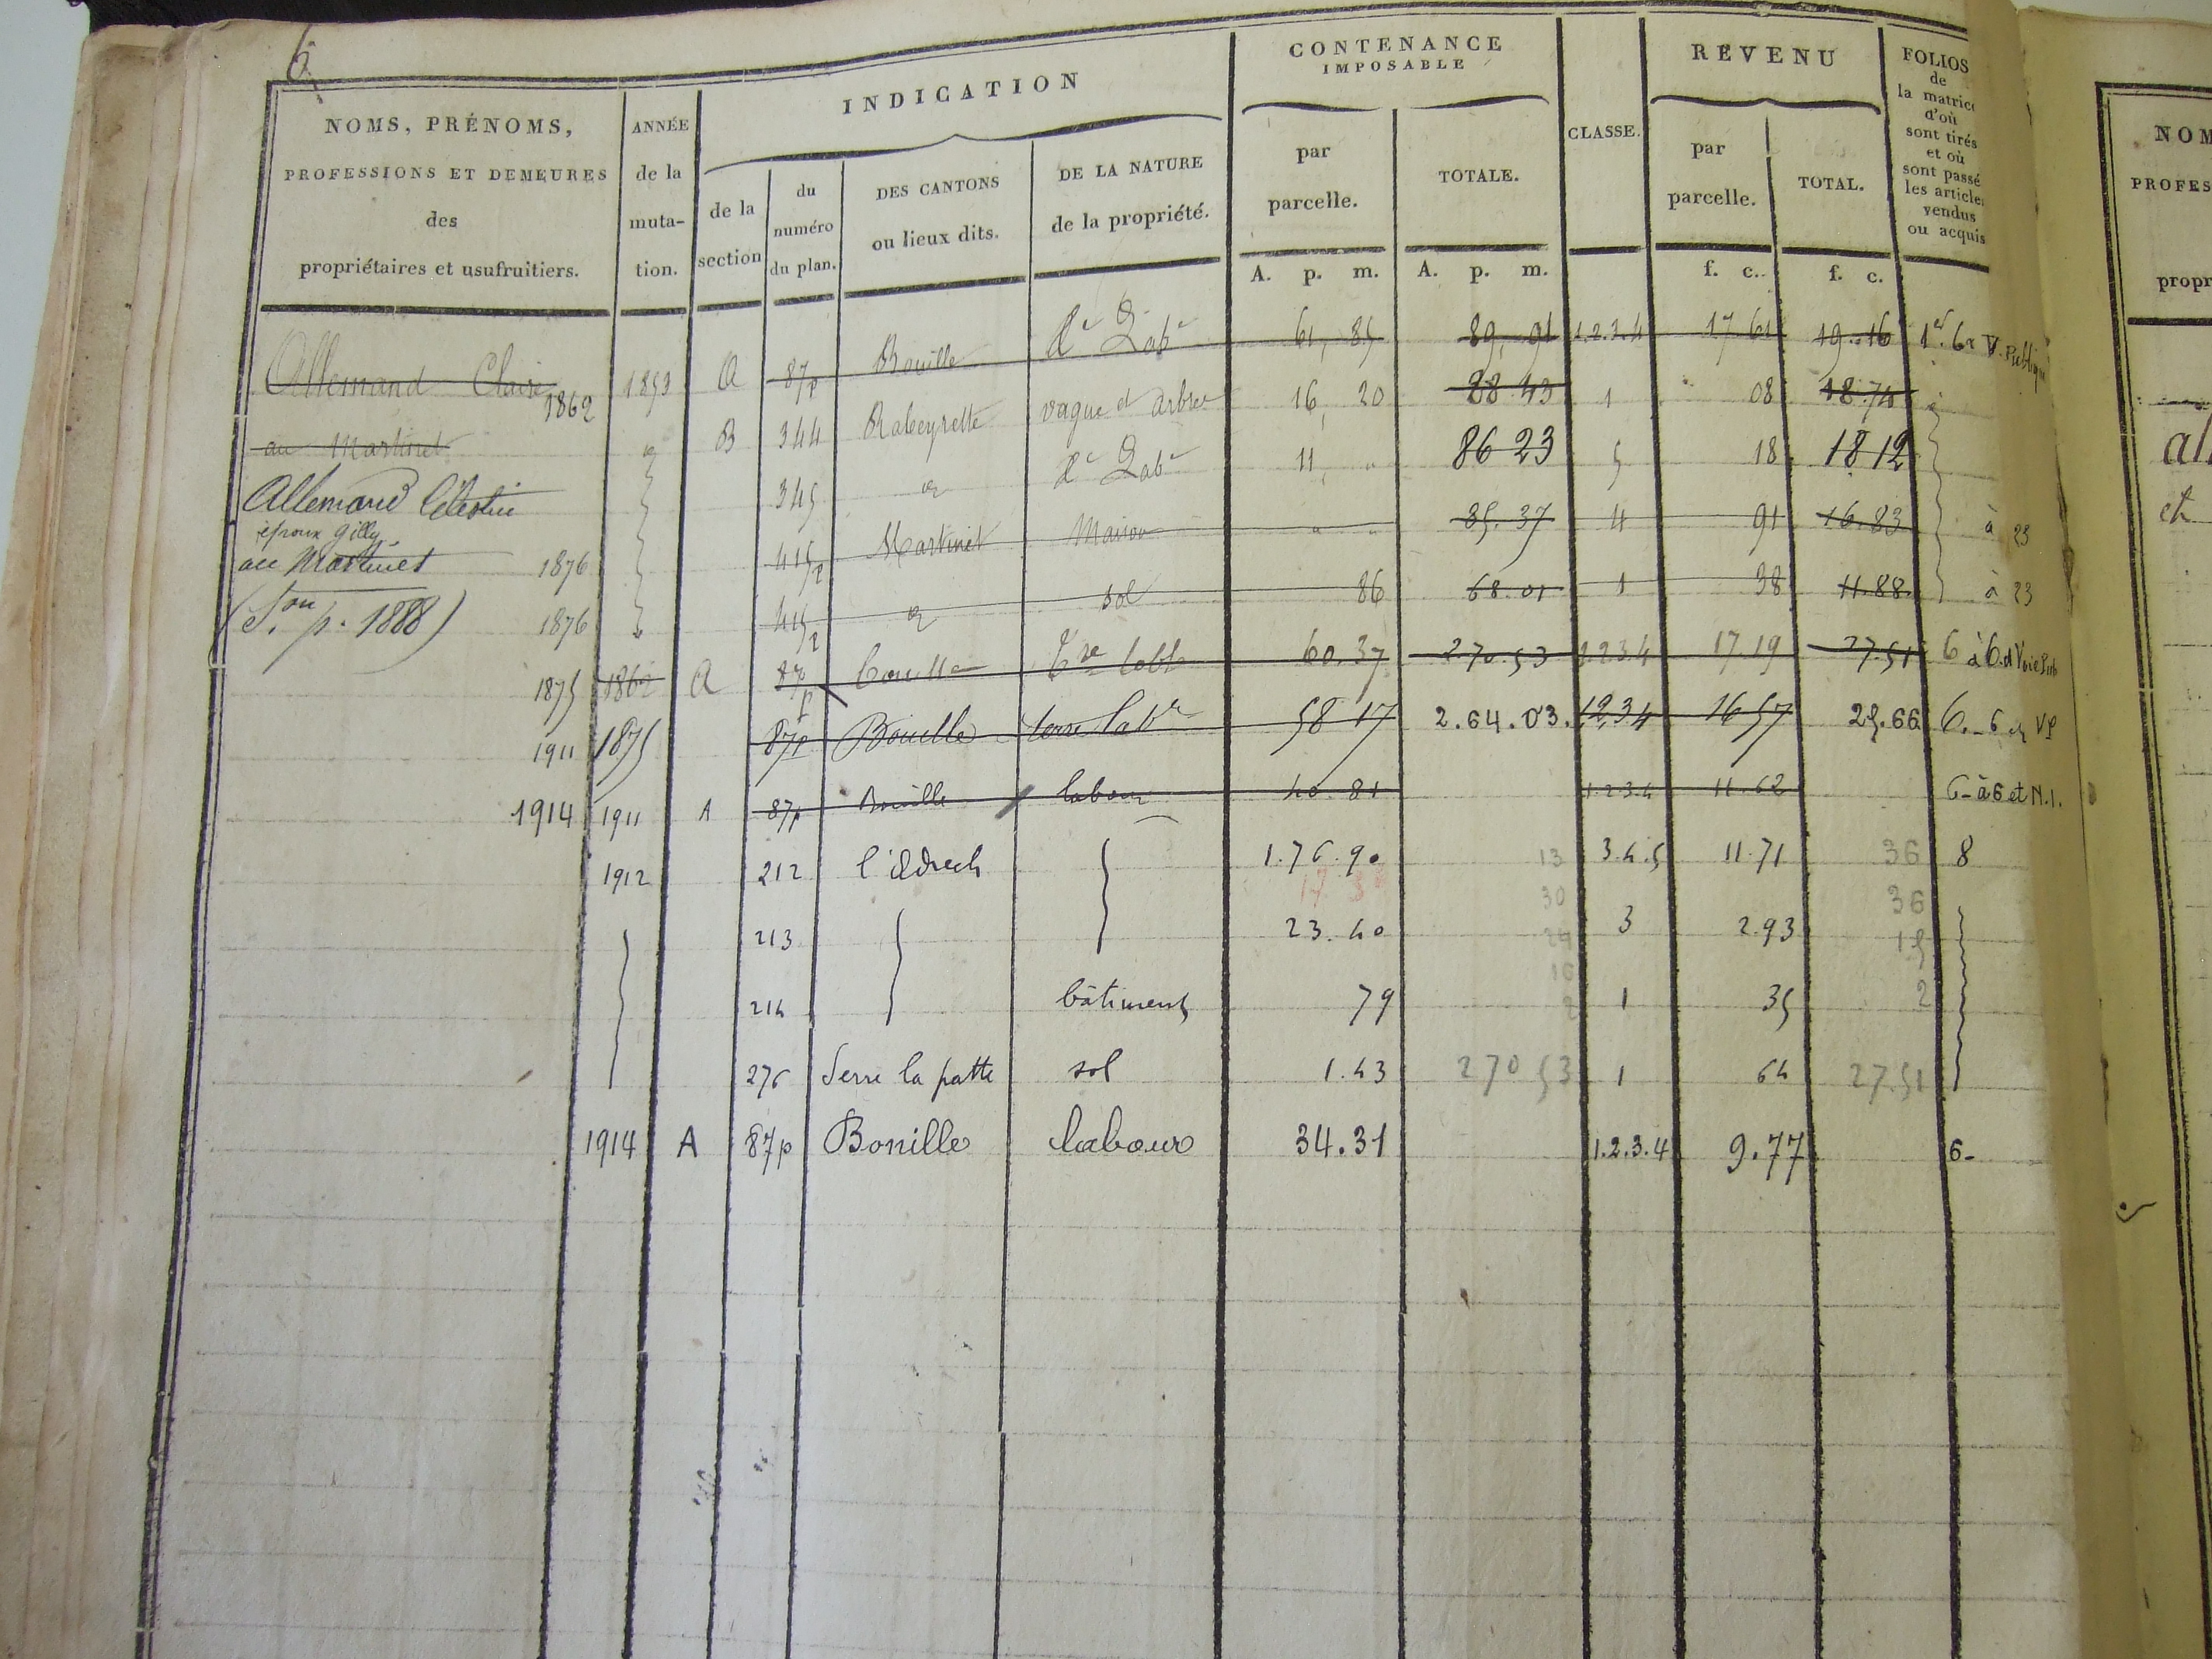 6
INDICATION
CONTENANCE
IMPOSABLE
CLASSE.
REVENU
FOLIOS
de
la matrice
d'où
sont tirés
et où
sont passé
les articles
vendus
ou acquis
NOMS, PRÉNOMS,
PROFESSIONS ET DEMEURES
des
propriétaires et usufruitiers.
ANNÉE
de la
muta-
tion.
de la
section
du
numéro
du plan.
DES CANTONS
ou lieux dits.
DE LA NATURE
de la propriété.
par
parcelle.
TOTALE.
par
parcelle.
TOTAL.
A. p. m. A. p. m. f. c. f. c.
Allemand Claire 1862 1853 A 87p Bouille Le Labe 61, 85 89, 91 1.2.3.4 17 61 19.16 1er 6 et V. Publique
au Martinet B 344 Rabeyrette vague et arbres 16, 20 88 43 1 08 18.74
345 Le Labe 11, " 86 23 5 18 18 12
Allemand Célestin
époux Gilly
au Martinet 1876 415p Martinet Maison " " 85.37 4 91 16.83 à 23
(Son p. 1888) 1876 415p sol 86 68.01 1 38 11.88 à 23
1875 1862 A 87p Bouille Tre labe 60.37 270.53 1.2.3.4 17.19 27.51 6 à 6 et Voie Pub
1911 1875 87p Bouille terre labe 58 17 2.64.03. 1234 16 57 25.66 6.-6 et VP
1914 1911 A 87p Bouille labour 40.81 1.2.3.4 11.62 6-à 6 et N.I.
1912 212 l'Adrech 1.76.90 13 3.4.5 11.71 36 8
17 3
30 36
213 23.40 3 2.93 15
16
214 bâtiments 79 1 35 2
276 Serre la patte sol 1.43 270 53 1 64 27.51
1914 A 87p Bouille labour 34.31 1.2.3.4 9.77 6-
NOM
PROFES
propr
all
et